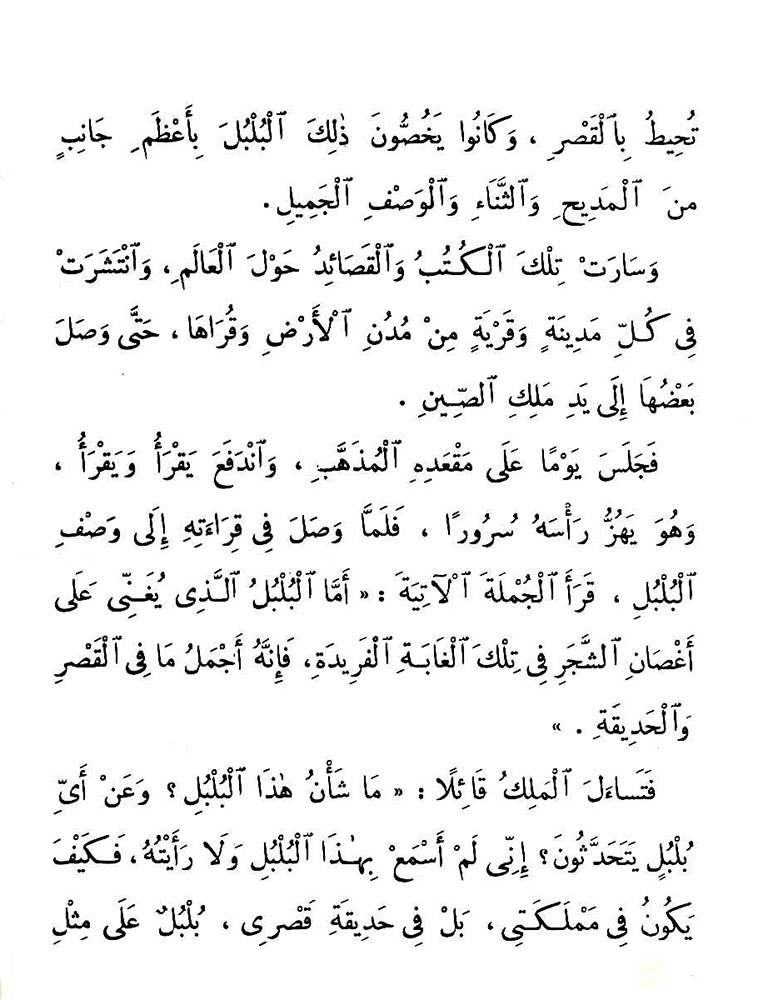 تُحِيطُ بِٱلْقَصْرِ ، وَكَانُوا يَخُصُّونَ ذٰلِكَ ٱلْبُلْبُلَ بِأَعْظَمِ جَانِبٍ
منَ ٱلْمَدِيحِ وَٱلثَّنَاءِ وَٱلْوَصْفِ ٱلْجَمِيلِ .
وَسَارَتْ تِلْكَ ٱلْكُتُبُ وَٱلْقَصَائِدُ حَوْلَ ٱلْعَالَمِ ، وَٱنْتَشَرَتْ
فِى كُلِّ مَدِينَةٍ وَقَرْيَةٍ مِنْ مُدُنِ ٱلْأَرْضِ وَقُرَاهَا ، حَتَّى وَصَلَ
بَعْضُهَا إِلَى يَدِ مَلِكِ ٱلصِّينِ .
فَجَلَسَ يَوْمًا عَلَى مَقْعَدِهِ ٱلْمُذَهَّبِ ، وَٱنْدَفَعَ يَقْرَأُ وَيَقْرَأُ ،
وَهُوَ يَهُزُّ رَأْسَهُ سُرُورًا ، فَلَمَّا وَصَلَ فِى قِرَاءَتِهِ إِلَى وَصْفِ
ٱلْبُلْبُلِ ، قَرَأَ ٱلْجُمْلَةَ ٱلْآتِيَةَ : « أَمَّا ٱلْبُلْبُلُ ٱلَّذِى يُغَنِّى عَلَى
أَغْصَانِ ٱلشَّجَرِ فِى تِلْكَ ٱلْغَابَةِ ٱلْفَرِيدَةِ ، فَإِنَّهُ أَجْمَلُ مَا فِى ٱلْقَصْرِ
وَٱلْحَدِيقَةِ . »
فَتَساءَلَ ٱلْمَلِكُ قَائِلًا : « مَا شَأْنُ هٰذَا ٱلْبُلْبُلِ ؟ وَعَنْ أَىِّ
بُلْبُلٍ يَتَحَدَّثُونَ ؟ إِنِّى لَمْ أَسْمَعْ بِهٰذَا ٱلْبُلْبُلِ وَلَا رَأَيْتُهُ ، فَكَيْفَ
يَكُونُ فِى مَمْلَكَتِى ، بَلْ فِى حَدِيقَةِ قَصْرِى ، بُلْبُلٌ عَلَى مِثْلِ